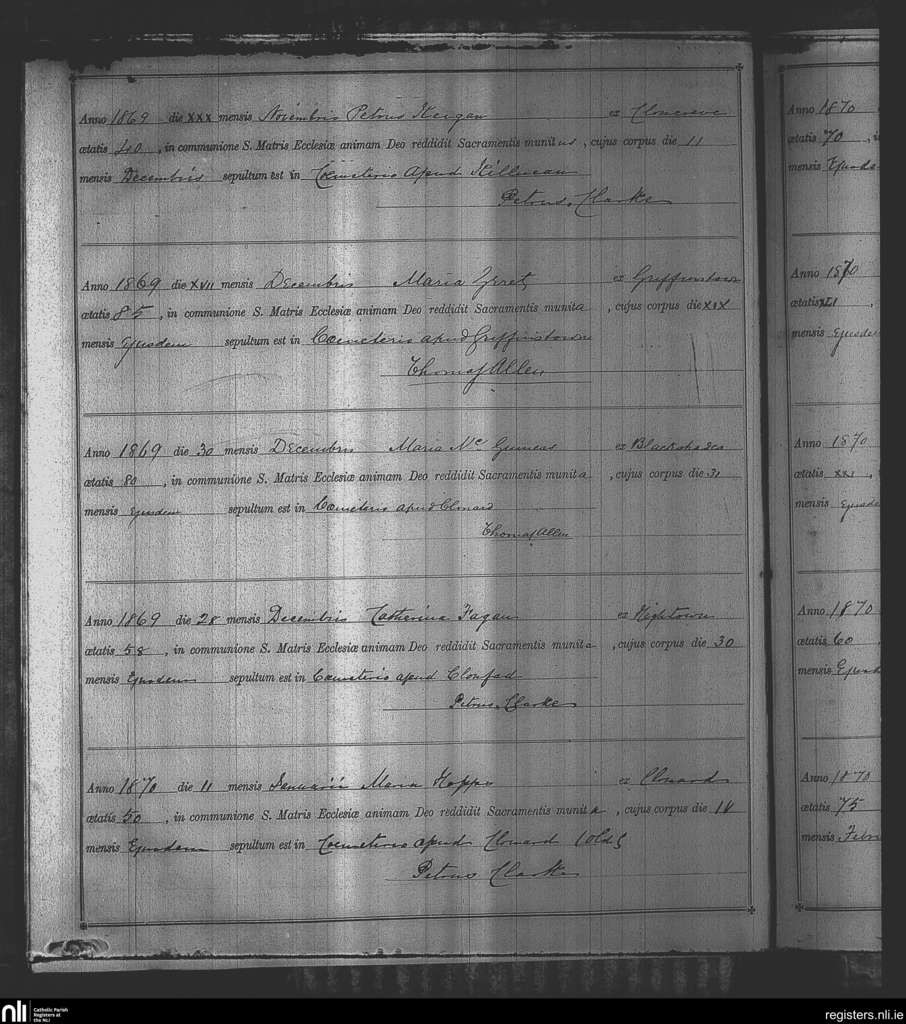 Anno 1869 die XXX mensis Novembris Petrus Keegan ex Cloncrave
ætatis 40, in communione S. Matris Ecclesiæ animam Deo reddidit Sacramentis munitus, cujus corpus die 11
mensis Decembris sepultum est in Cœmeterio apud Killucan
Petrus Clarke
Anno 1869 die XVII mensis Decembris Maria ex Griffinstown
ætatis 85, in communione S. Matris Ecclesiæ animam Deo reddidit Sacramentis munita, cujus corpus die XIX
mensis Ejusdem sepultum est in Cœmeterio apud Griffinstown
Thomas Allen
Anno 1869 die 30 mensis Decembris Maria Mc ex Blackshades
ætatis 80, in communione S. Matris Ecclesiæ animam Deo reddidit Sacramentis munita, cujus corpus die 31
mensis Ejusdem sepultum est in Cœmeterio apud Clonard
Thomas Allen
Anno 1869 die 28 mensis Decembris Catherina Fagan ex Hightown
ætatis 58, in communione S. Matris Ecclesiæ animam Deo reddidit Sacramentis munita, cujus corpus die 30
mensis Ejusdem sepultum est in Cœmeterio apud Clonfad
Petrus Clarke
Anno 1870 die 11 mensis Januarii Maria Hoppe ex Clonard
ætatis 50, in communione S. Matris Ecclesiæ animam Deo reddidit Sacramentis munita, cujus corpus die
mensis Ejusdem sepultum est in Cœmeterio apud Clonard (Old)
Petrus Clarke
Anno 1870
ætatis 70, i
mensis Ejusde
Anno 1870
ætatis XLI,
mensis Ejusde
Anno 1870
ætatis XXI,
mensis Ejusde
Anno 1870
ætatis 60,
mensis Ejusd
Anno 1870
ætatis 75,
mensis Febru
nli Catholic Parish
Registers at
the NLI
registers.nli.ie